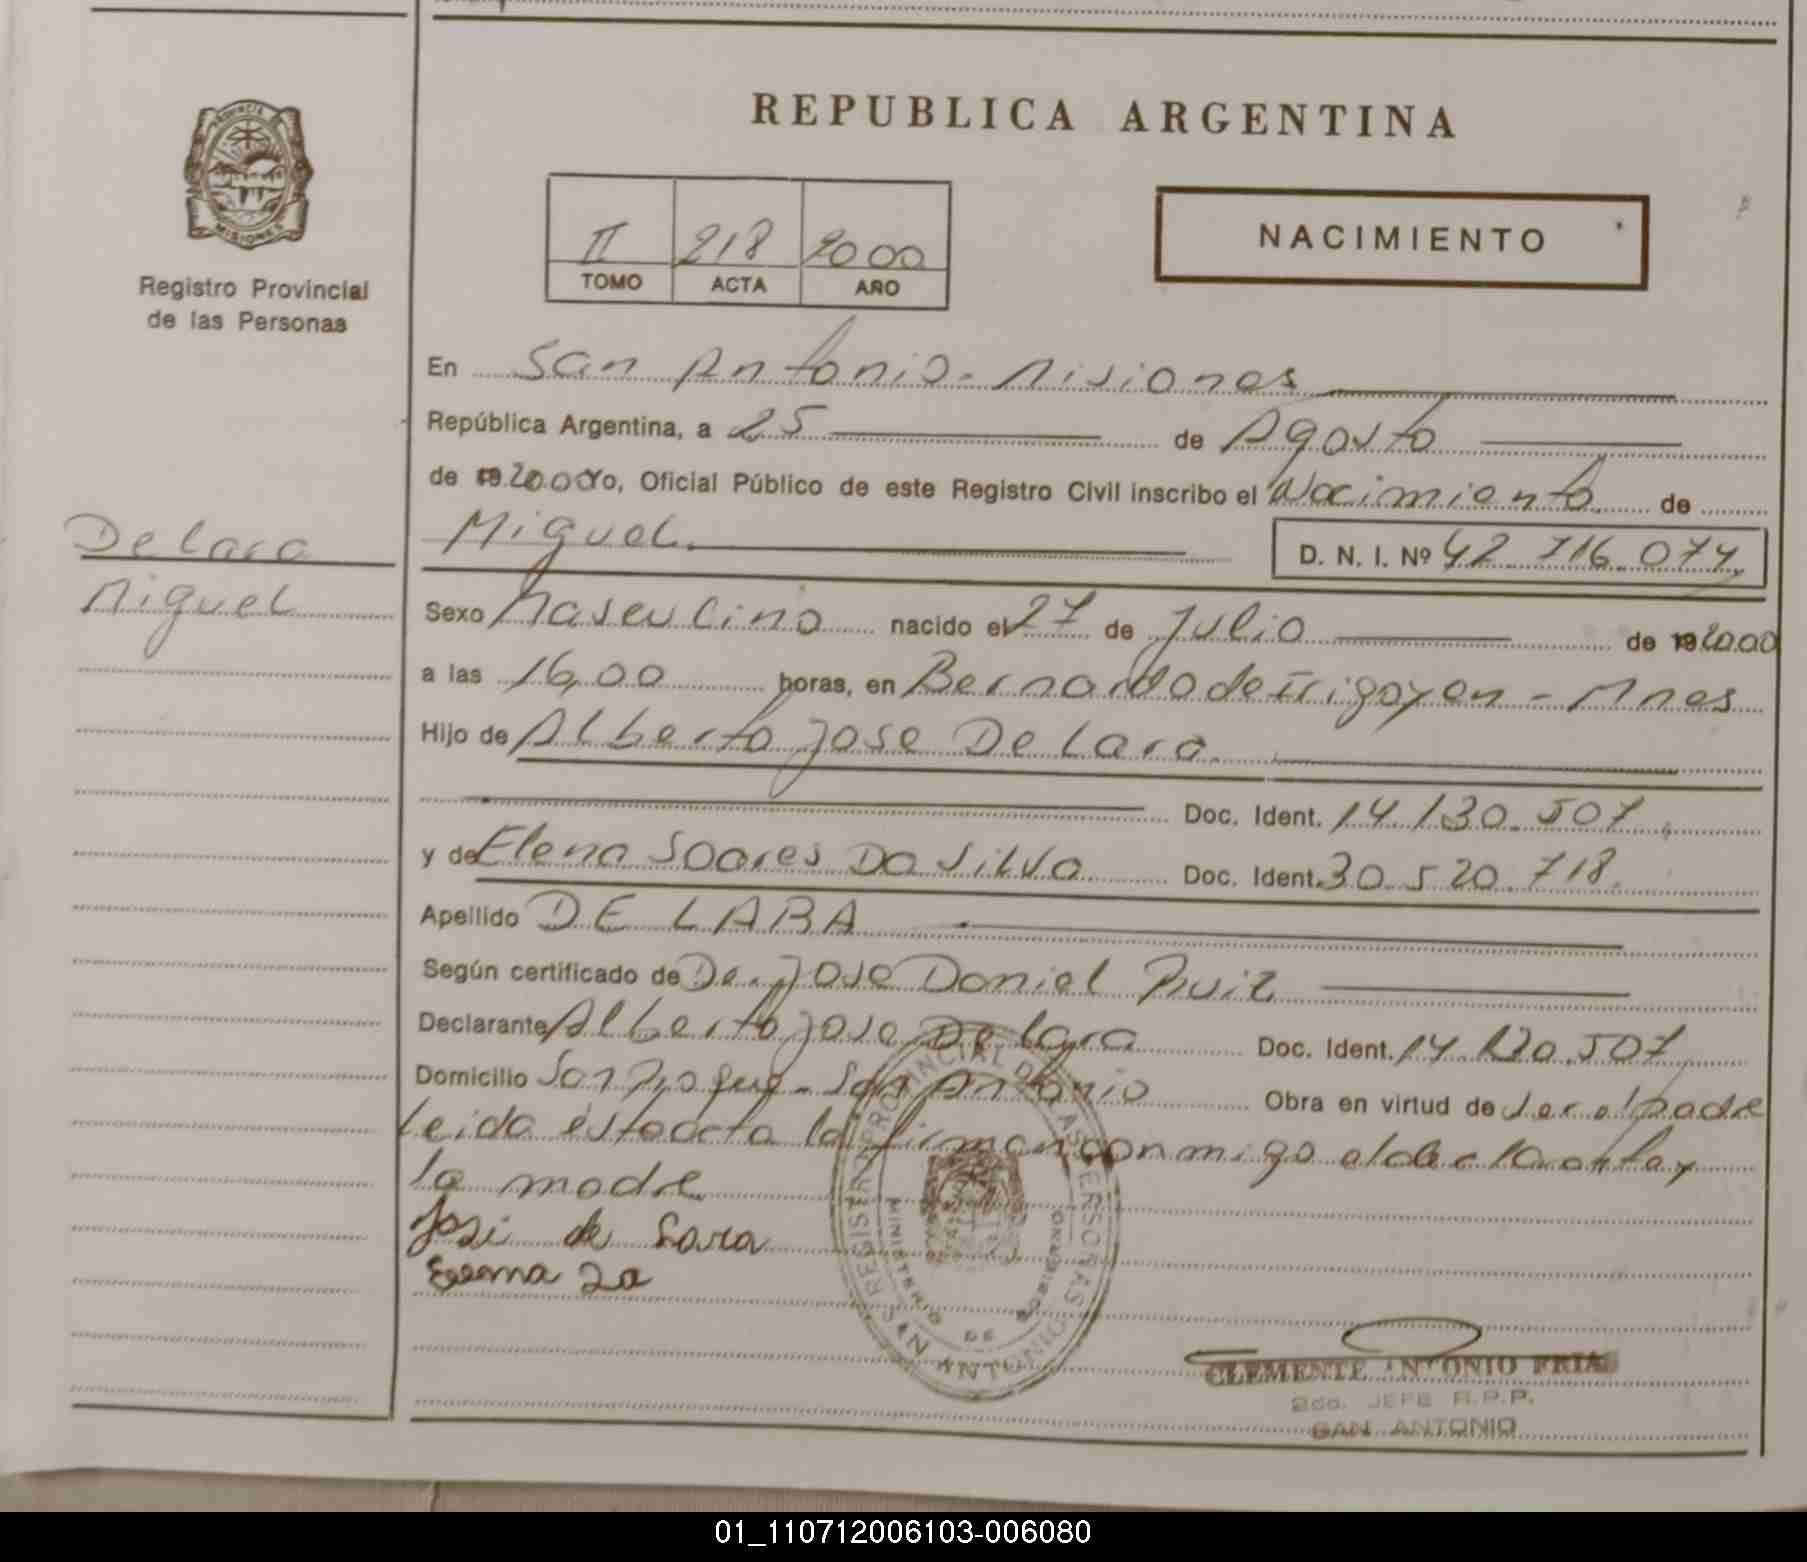 REPUBLICA ARGENTINA
PROVINCIA
MISIONES
Registro Provincial
de las Personas
II 218 2000
TOMO ACTA AÑO
NACIMIENTO
En San Antonio - Misiones
República Argentina, a 25 de Agosto
de 19 2000 Yo, Oficial Público de este Registro Civil inscribo el Nacimiento de
De Lara
Miguel
Miguel. D. N. I. Nº 42.716.074
Sexo Masculino nacido el 27 de Julio de 19 2000
a las 16,00 horas, en Bernardo de Irigoyen - Mnes
Hijo de Alberto Jose De Lara
Doc. Ident. 14.130.507
y de Elena Soares Da Silva Doc. Ident. 30.520.718
Apellido DE LARA
Según certificado de De. Jose Daniel Ruiz
Declarante Alberto Jose De Lara Doc. Ident. 14.130.507
Domicilio San Antonio Obra en virtud de ser el padre
Leida esta acta la firman conmigo el declarante y
la madre
Jose de Lara
REGISTRO PROVINCIAL DE LAS PERSONAS
MINISTERIO DE GOBIERNO
SAN ANTONIO
CLEMENTE ANTONIO FRIAS
2do. JEFE R.P.P.
SAN ANTONIO
01_110712006103-006080